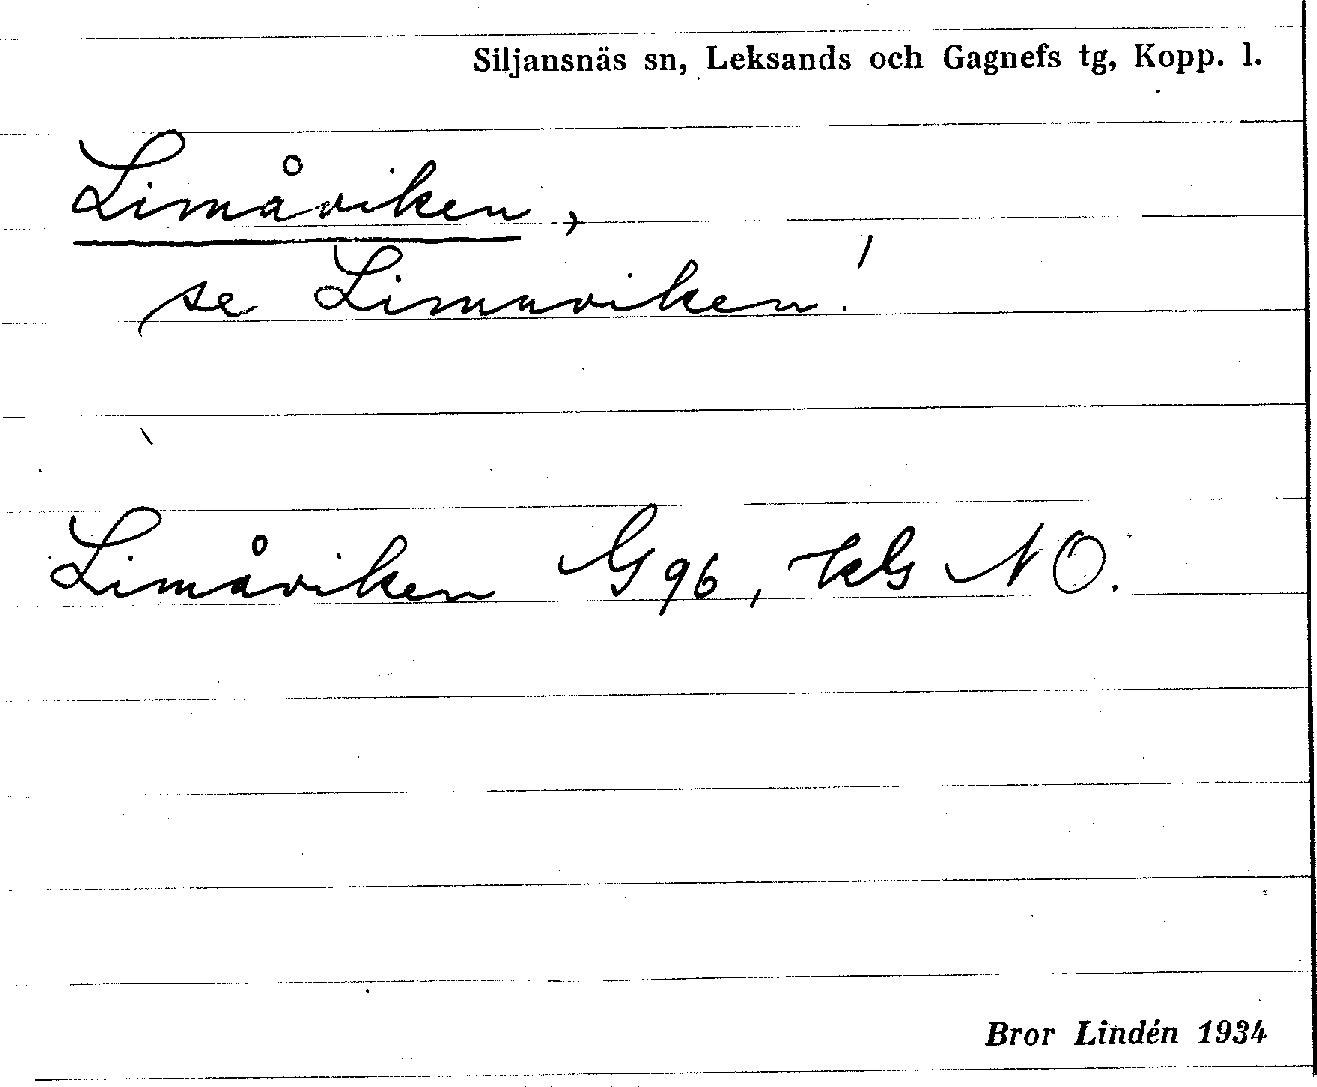 Siljansnäs sn, Leksands och Gagnefs tg, Kopp. l.
Limåviken,
se Limaviken!
Limåviken G 96, NO.
Bror Lindén 1934